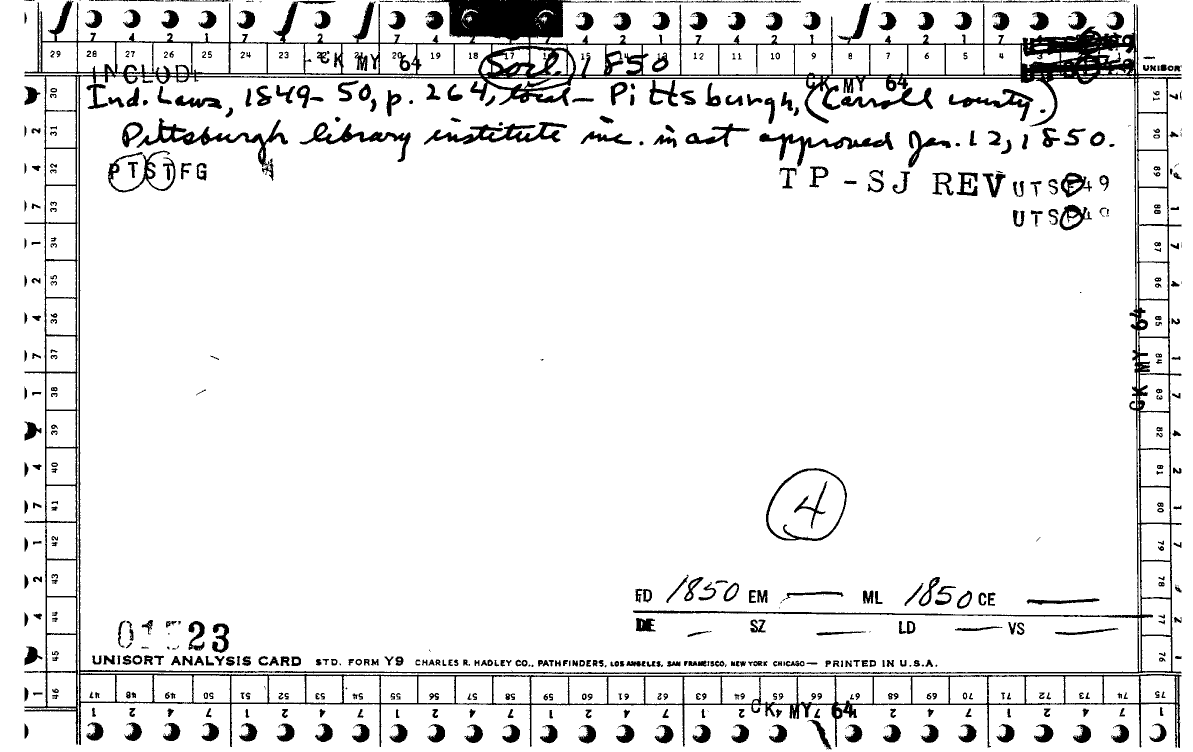 7 4 2 1 7 4 2 1 7 4 2 1 7 4 2 1 7 4 2 1
29 28 27 26 25 24 23 20 19 18 17 15 14 13 12 11 10 9 8 7 6 5 4 3
INCLUDE GK MY 64 Socl. 1850 UNISOR
GK MY 64
Ind. Laws, 1849-50, p. 264, local - Pittsburgh, (Carroll county.)
Pittsburgh library institute inc. in act approved Jan. 12, 1850.
PTSTFG TP-SJ REV UTSP49
UTSP49
30
2 31
4 32
7 33
1 34
2 35
4 36
7 37
1 38
39
4 40
7 41
1 42
2 43
4 44
45
1 46
91
90
89
88
87
86
85
84
83
82
81
80
79
78
77
76
GK MY 64
4
FD 1850 EM — ML 1850 CE —
DE — SZ — LD — VS —
01523
UNISORT ANALYSIS CARD STD. FORM Y9 CHARLES R. HADLEY CO., PATHFINDERS, LOS ANGELES, SAN FRANCISCO, NEW YORK CHICAGO — PRINTED IN U.S.A.
47 48 49 50 51 52 53 54 55 56 57 58 59 60 61 62 63 64 65 66 67 68 69 70 71 72 73 74 75
GK MY 64
1 2 4 7 1 2 4 7 1 2 4 7 1 2 4 7 1 2 4 7 1 2 4 7 1